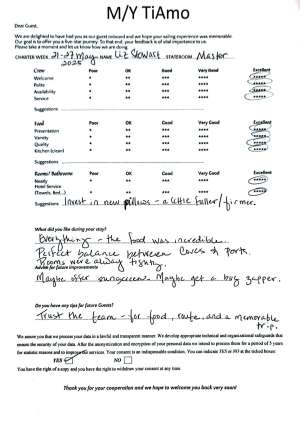 M/Y TiAmo
Dear Guest,
We are delighted to have had you as our guest onboard and we hope your sailing experience was memorable.
Our goal is to offer you a five-star journey. To that end, your feedback is of vital importance to us.
Please take a moment and let us know how we are doing.
CHARTER WEEK 21-27 May NAME Liz Stewart STATEROOM Master
2025
Crew Poor OK Good Very Good Excellent
Welcome * ** *** **** *****
Polite * ** *** **** *****
Availability * ** *** **** *****
Service * ** *** **** *****
Suggestions
Food Poor OK Good Very Good Excellent
Presentation * ** *** **** *****
Variety * ** *** **** *****
Quality * ** *** **** *****
Kitchen (clean) * ** *** **** *****
Suggestions
Rooms/ Bathrooms Poor OK Good Very Good Excellent
Ready * ** *** **** *****
Hotel Service
(Towels, Bed...) * ** *** **** *****
Suggestions Invest in new pillows - a little fuller/firmer.
What did you like during your stay?
Everything - the food was incredible.
Perfect balance between Coves & Ports.
Rooms were always tidy.
Advise for future improvements
Maybe offer sunscreen. Maybe get a bug zapper.
Do you have any tips for future Guests?
Trust the team - for food, route, and a memorable
trip.
We assure you that we process your data in a lawful and transparent manner. We develop appropriate technical and organisational safeguards that
ensure the security of your data. After the anonymization and encryption of your personal data we intend to process them for a period of 5 years
for statistic reasons and to improve our services. Your consent is an indispensable condition. You can indicate YES or NO at the ticked boxes:
YES NO
You have the right of a copy and you have the right to withdraw your consent at any time.
Thank you for your cooperation and we hope to welcome you back very soon!